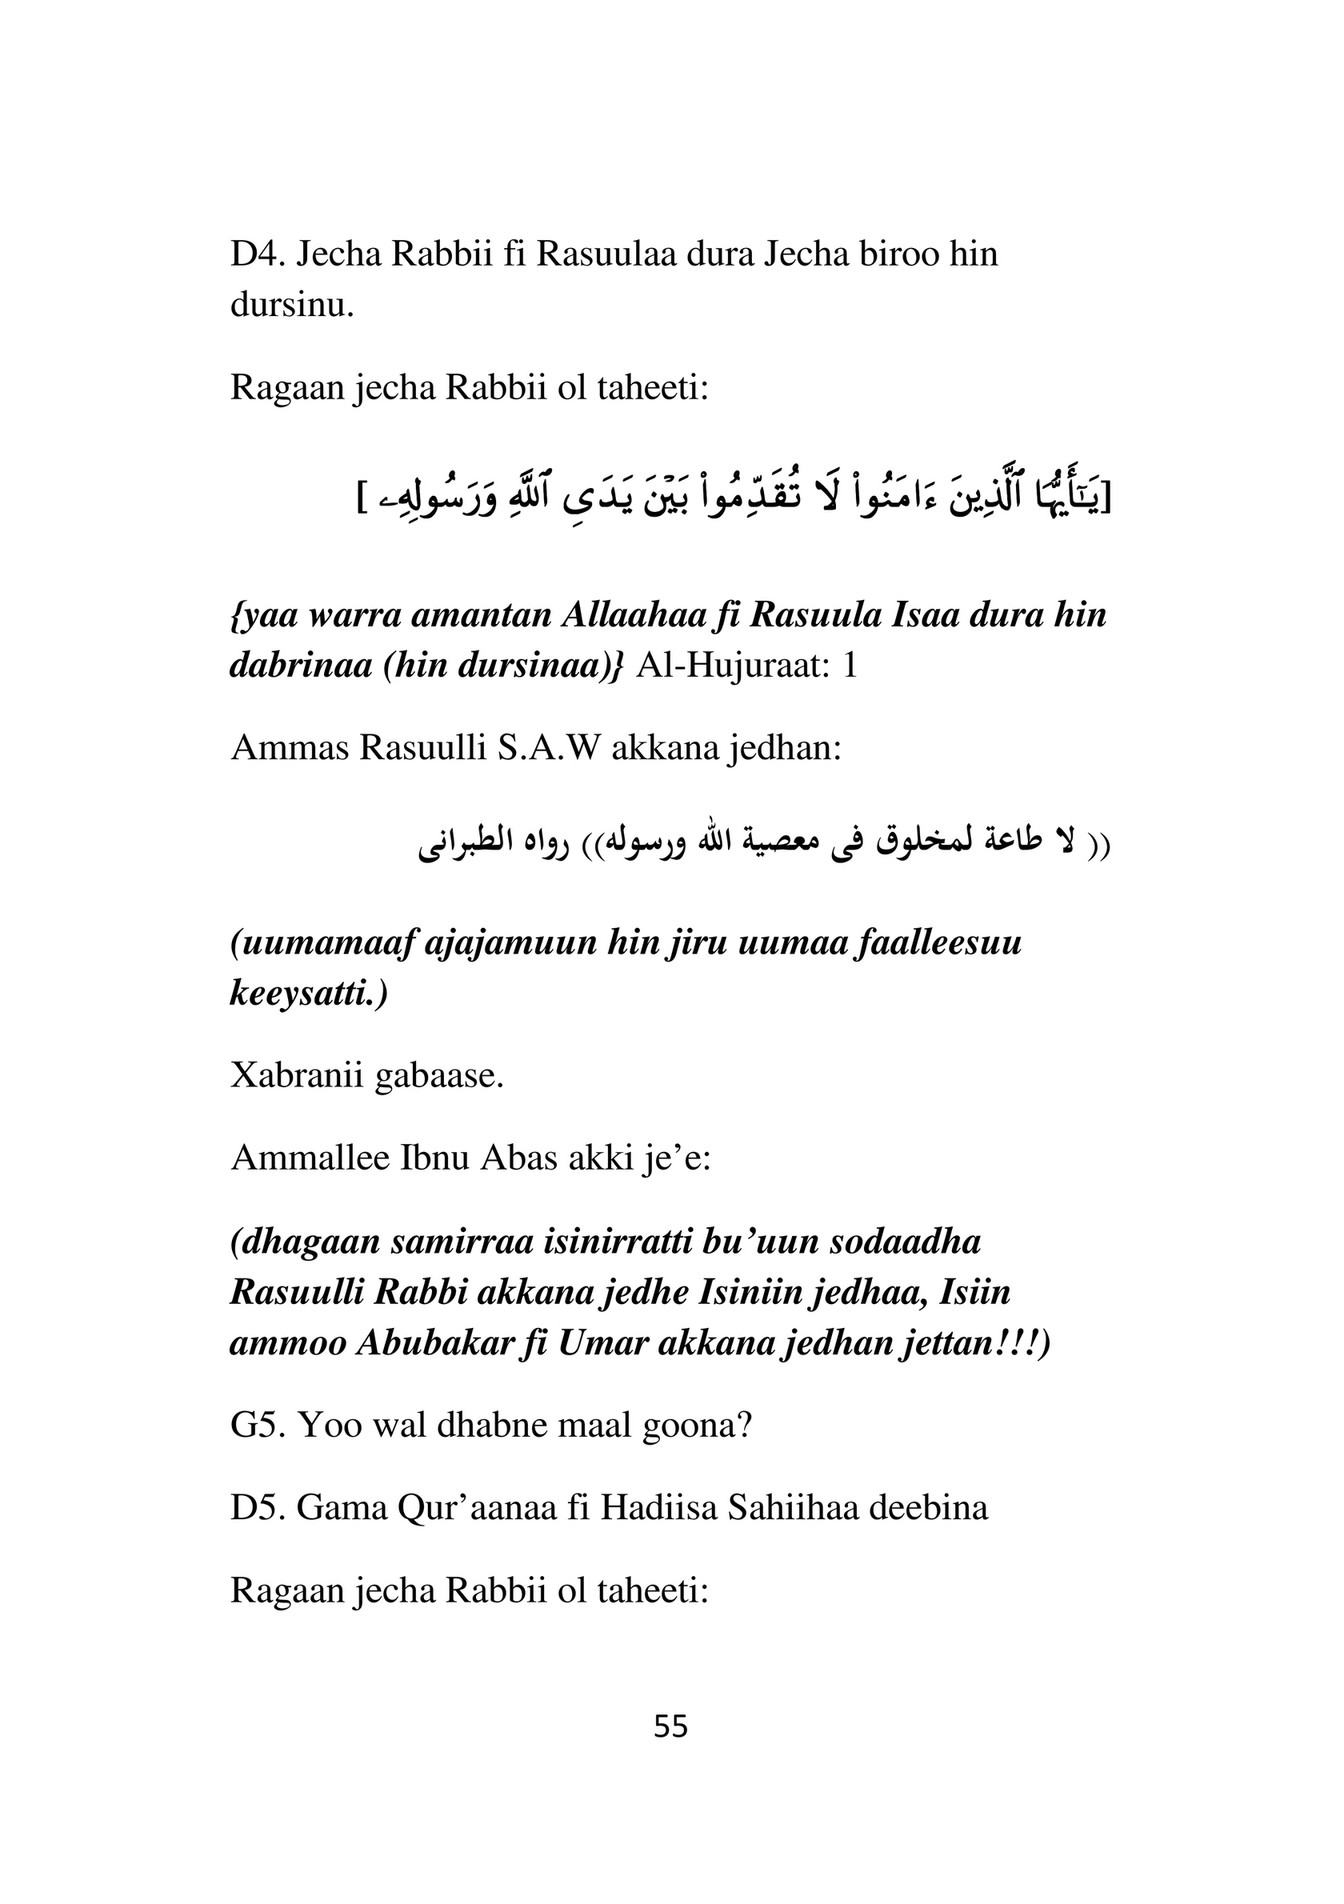 D4. Jecha Rabbii fi Rasuulaa dura Jecha biroo hin
dursinu.
Ragaan jecha Rabbii ol taheeti:
[يَـٰٓأَيُّهَا ٱلَّذِينَ ءَامَنُوا۟ لَا تُقَدِّمُوا۟ بَيْنَ يَدَىِ ٱللَّهِ وَرَسُولِهِۦ ]
{yaa warra amantan Allaahaa fi Rasuula Isaa dura hin
dabrinaa (hin dursinaa)} Al-Hujuraat: 1
Ammas Rasuulli S.A.W akkana jedhan:
(( لا طاعة لمخلوق فى معصية الله ورسوله)) رواه الطبرانى
(uumamaaf ajajamuun hin jiru uumaa faalleesuu
keeysatti.)
Xabranii gabaase.
Ammallee Ibnu Abas akki je’e:
(dhagaan samirraa isinirratti bu’uun sodaadha
Rasuulli Rabbi akkana jedhe Isiniin jedhaa, Isiin
ammoo Abubakar fi Umar akkana jedhan jettan!!!)
G5. Yoo wal dhabne maal goona?
D5. Gama Qur’aanaa fi Hadiisa Sahiihaa deebina
Ragaan jecha Rabbii ol taheeti:
55